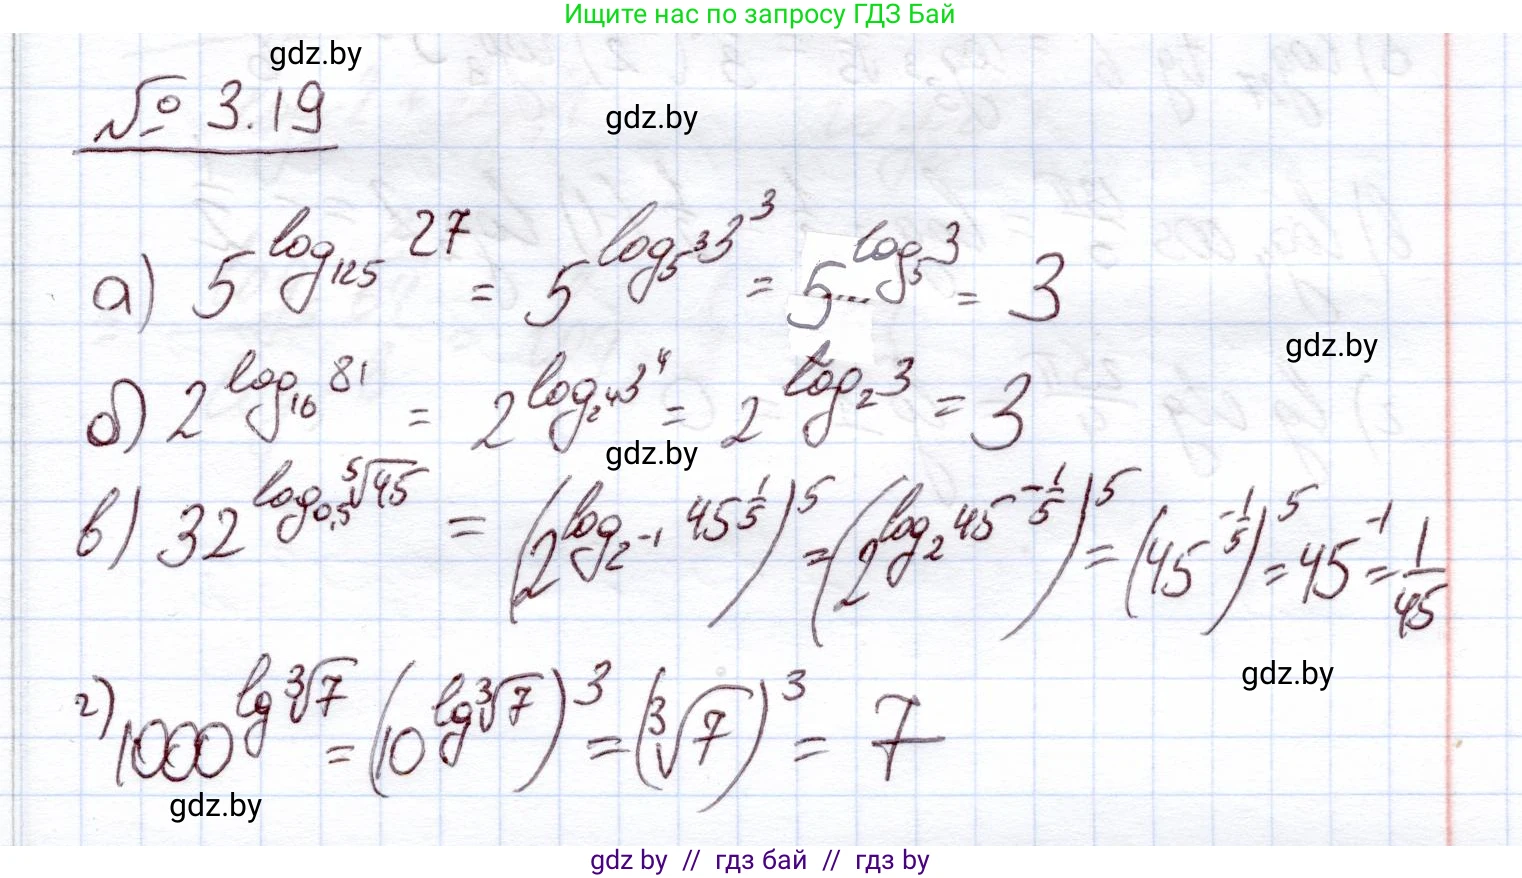 Ищите нас по запросу ГДЗ Бай
gdz.by
№ 3.19
gdz.by
а) 5^(log_125 27) = 5^(log_(5^3) 3^3) = 5^(log_5 3) = 3
gdz.by
б) 2^(log_16 81) = 2^(log_(2^4) 3^4) = 2^(log_2 3) = 3
gdz.by
в) 32^(log_0,5 ⁵√45) = (2^(log_(2^-1) 45^(1/5)))^5 = (2^(log_2 45^(-1/5)))^5 = (45^(-1/5))^5 = 45^-1 = 1/45
gdz.by
г) 1000^(lg ³√7) = (10^(lg ³√7))^3 = (³√7)^3 = 7
gdz.by
gdz by // гдз бай // гдз by